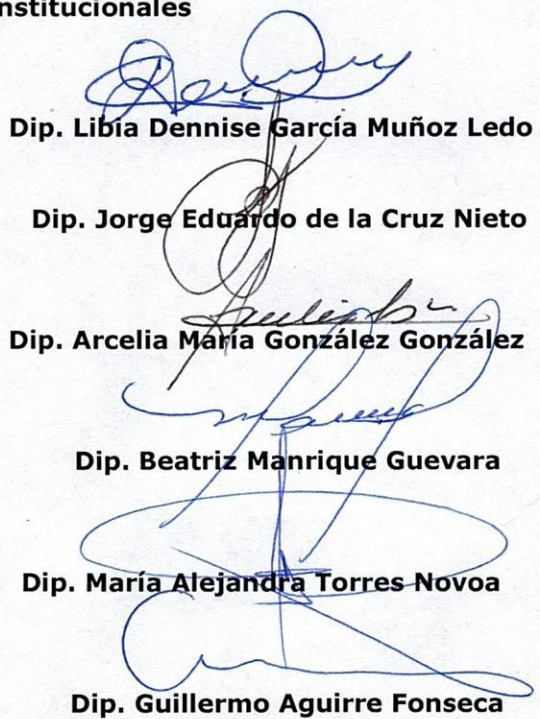 nstitucionales
Dip. Libia Dennise García Muñoz Ledo
Dip. Jorge Eduardo de la Cruz Nieto
Dip. Arcelia María González González
Dip. Beatriz Manrique Guevara
Dip. María Alejandra Torres Novoa
Dip. Guillermo Aguirre Fonseca